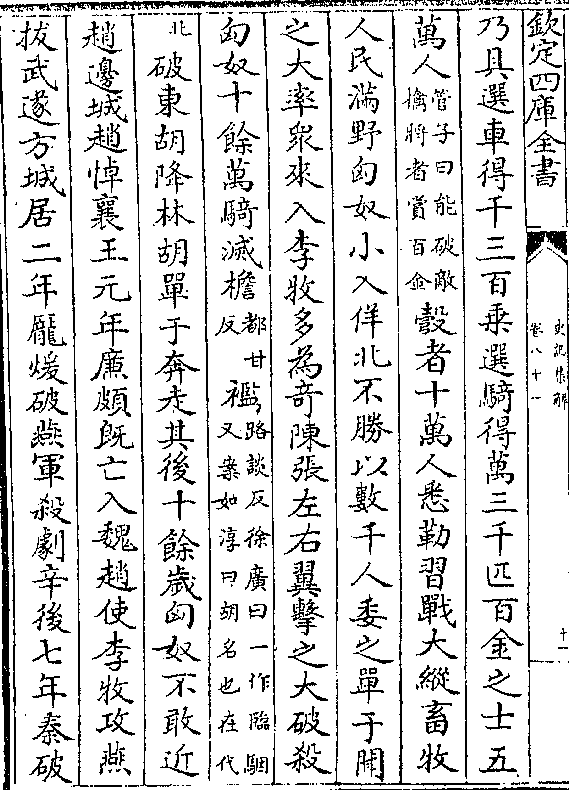 欽定四庫全書
史記集解
卷八十一
十一
乃具選車得千三百乘選騎得萬三千匹百金之士五
萬人管子曰能破敵擒將者賞百金彀者十萬人悉勒習戰大縱畜牧
人民滿野匈奴小入佯北不勝以數千人委之單于聞
之大率衆來入李牧多為奇陳張左右翼擊之大破殺
匈奴十餘萬騎滅檐都甘反襤路談反徐廣曰一作臨駰又案如淳曰胡名也在代
北破東胡降林胡單于奔走其後十餘歲匈奴不敢近
趙邊城趙悼襄王元年廉頗既亡入魏趙使李牧攻燕
拔武遂方城居二年龐煖破燕軍殺劇辛後七年秦破